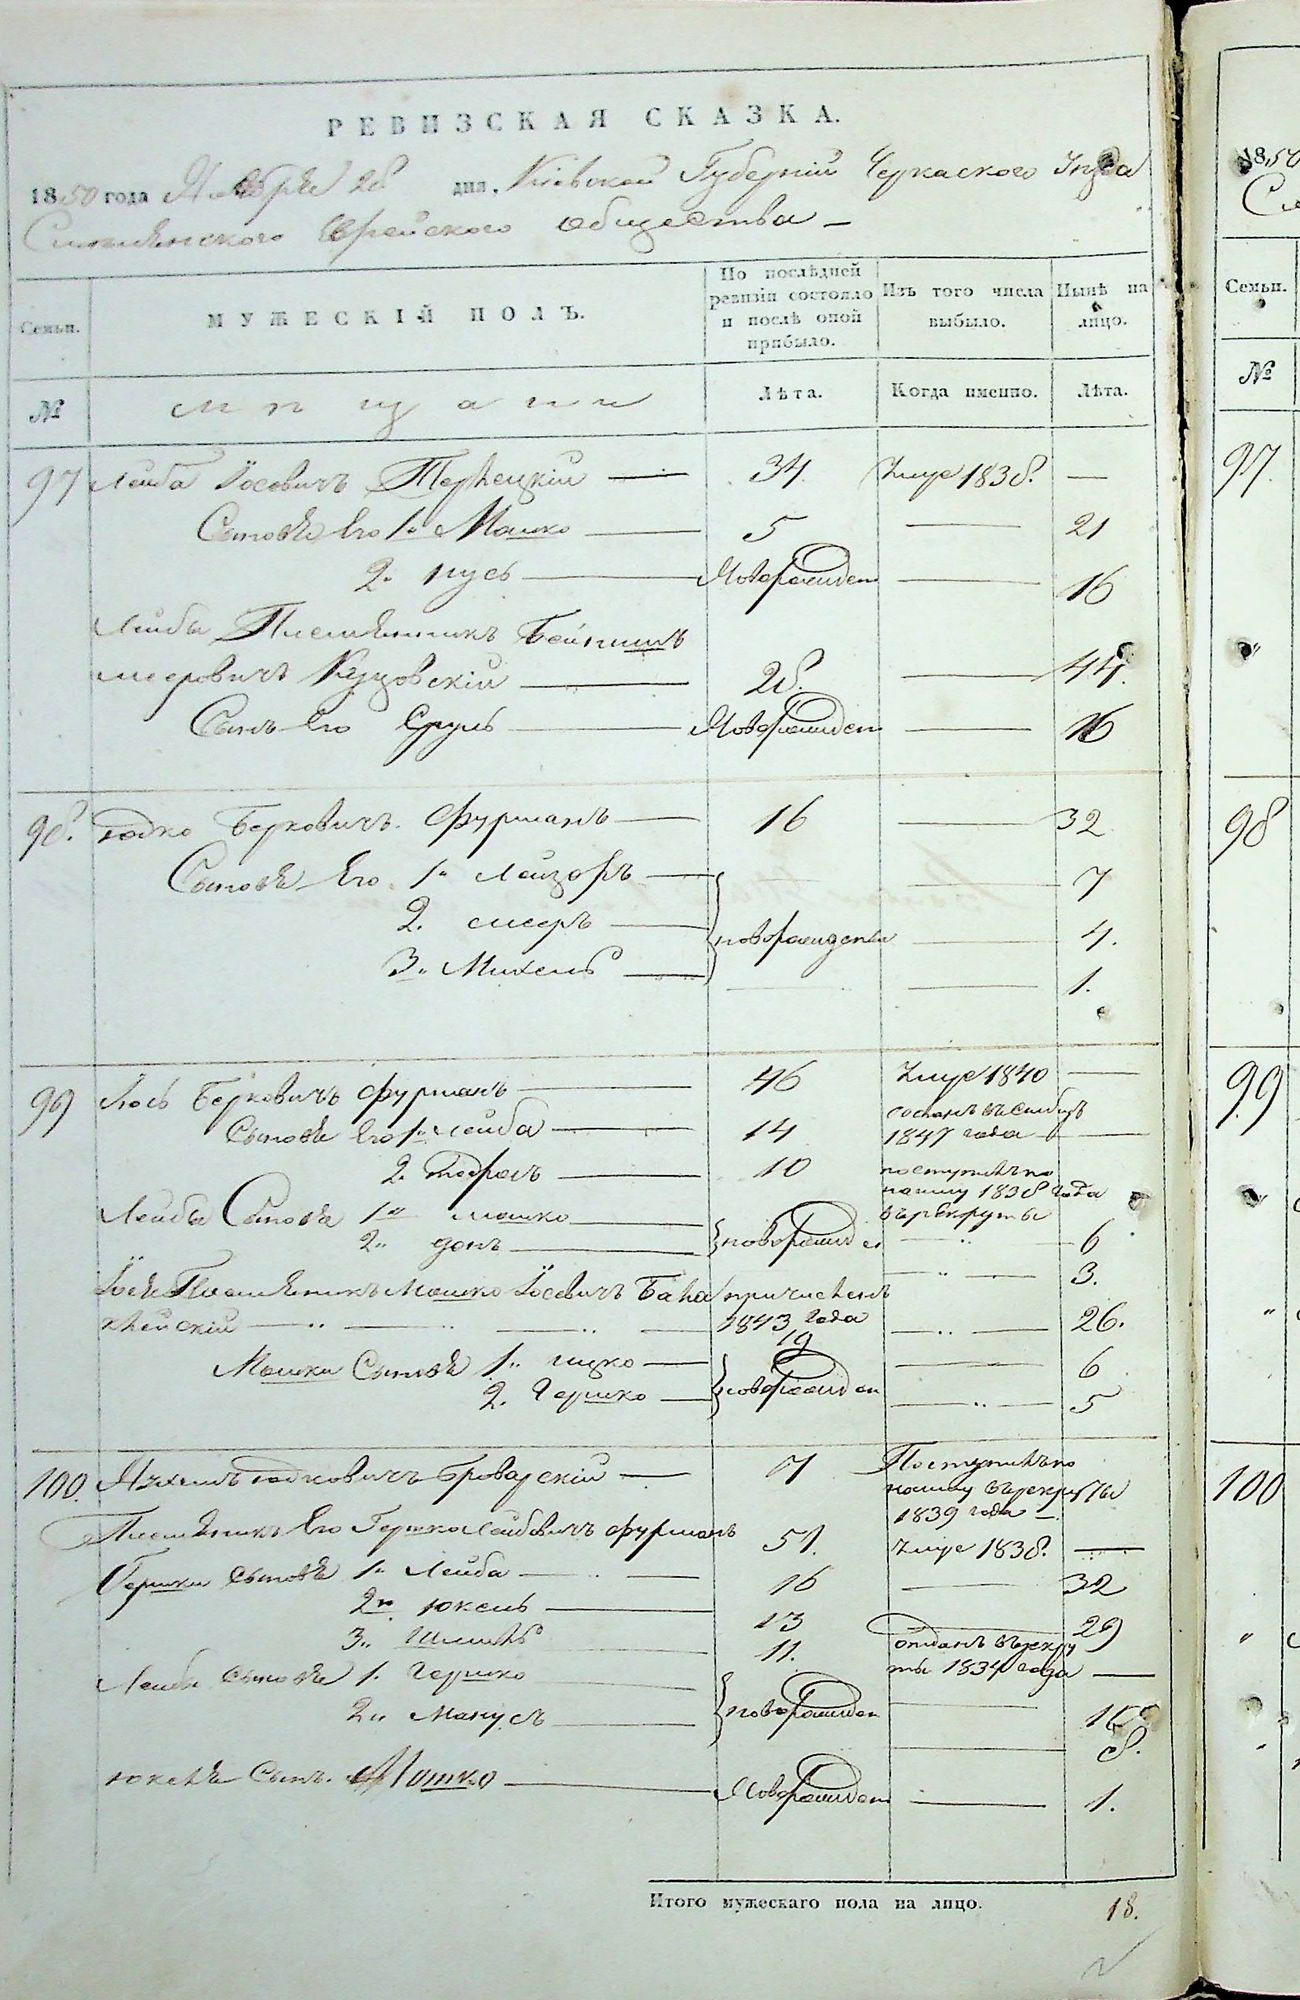 РЕВИЗСКАЯ СКАЗКА.
1850 года Ноября 28 дня, Кіевской Губерніи Черкаского Уезда
Смелянского Еврейского общества —
Семьи. МУЖЕСКІЙ ПОЛЪ. По послѣдней ревизіи состояло и послѣ оной прибыло. Изъ того числа выбыло. Нынѣ на лицо.
№ мещане Лѣта. Когда именно. Лѣта.
97 Лейба Іосевичъ — 34. умре 1838. —
Сыновя Его 1. Мошко — 5 — 21
2. нусь — Новорожден — 16
Лейбы Племянникъ Бейнишъ
меровичъ — 28. — 44.
Сынъ Его Сруль — Новорожден — 16
98. юдко Берковичъ Фурманъ — 16 — 32
Сыновя Его 1. Лейзоръ — 7
2. мееръ — новорожденн — 4.
3. Михель — 1.
99 Іось Берковичъ фурманъ — 46 умре 1840 —
Сыновя Его 1. Лейба — 14 сосланъ въ сибирь 1847 года —
2. — 10 поступилъ по найму 1838 года въ рекруты
Лейбы Сыновя 1. мошко — новорожден — 6
2. — 3.
Іося Племянникъ Мошко Іосевичъ причисленъ
1843 года 19 — 26.
Мошки Сыновя 1. ицко — 6
2. Гершко — новорожден — 5
100. юдковичъ Броварскій — 7 Поступилъ по найму въ рекруты 1839 года —
Племянникъ Его Гершко Лейбовичъ фурманъ 51. умре 1838. —
Гершки сыновя 1. Лейба — 16 — 32
2. юкель — 13 — 29
3. — 11. отданъ въ рекруты 1834 года —
Лейбы сыновя 1. Гершко
2. Манусъ — новорожден — 8.
юкеля Сынъ. Мошко — Новорожден — 1.
Итого мужескаго пола на лицо. 18.
1850
Семьи.
№
97
98
99
100